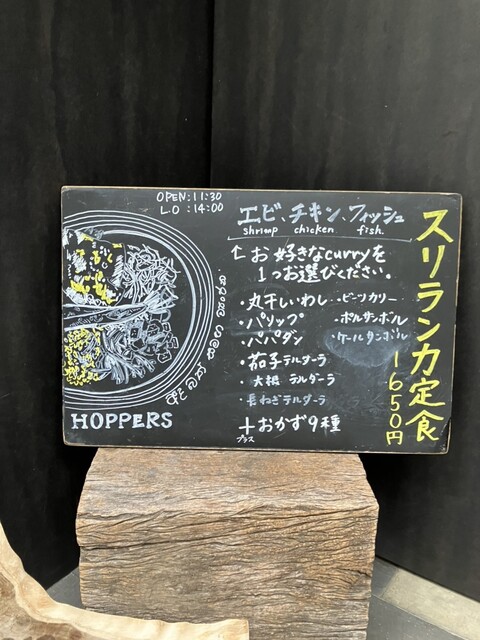 OPEN:11:30
L.O :14:00
エビ、チキン、フィッシュ
shrimp chicken fish.
お好きなcurryを
1つお選びください。
・丸干しいわし
・パリップ
・パパダン
・茄子テルダーラ
・大根 テルダーラ
・長ねぎテルダーラ
・ビーツカリー
・ポルサンボル
・ケールサンボル
+おかず9種
プラス
スリランカ定食
1650円
HOPPERS